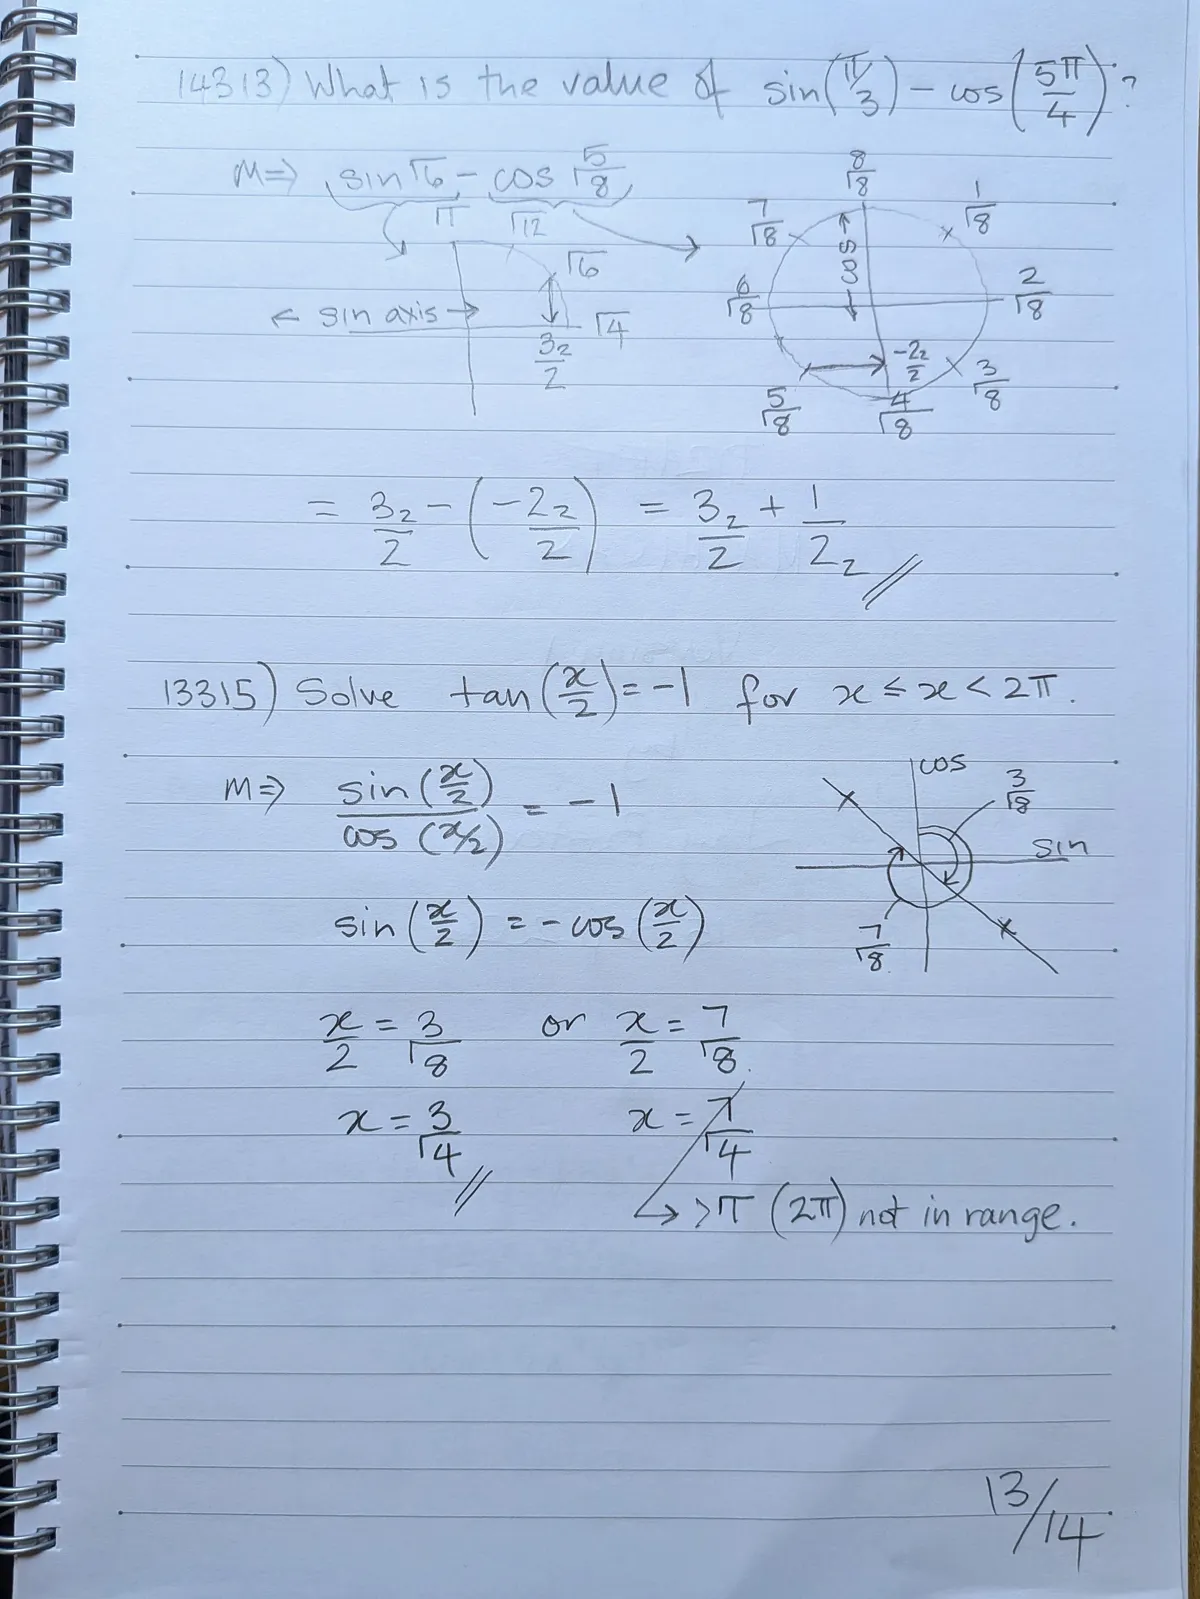 14313) What is the value of sin(π/3) - cos(5π/4)?
M=> sin Γ6 - cos 5/Γ8
Γ1 Γ12 Γ6 Γ4
← sin axis →
3₂/2
8/Γ8 1/Γ8 2/Γ8 3/Γ8 4/Γ8 5/Γ8 6/Γ8 7/Γ8
← cos →
-2₂/2
= 3₂/2 - (-2₂/2) = 3₂/2 + 1/2₂ //
13315) Solve tan(x/2) = -1 for x ≤ x < 2π.
M=> sin(x/2)/cos(x/2) = -1
cos
3/Γ8
sin
7/Γ8
sin(x/2) = -cos(x/2)
x/2 = 3/Γ8 or x/2 = 7/Γ8.
x = 3/Γ4 // x = 7/Γ4
↳ >Γ1 (2π) not in range.
13/14